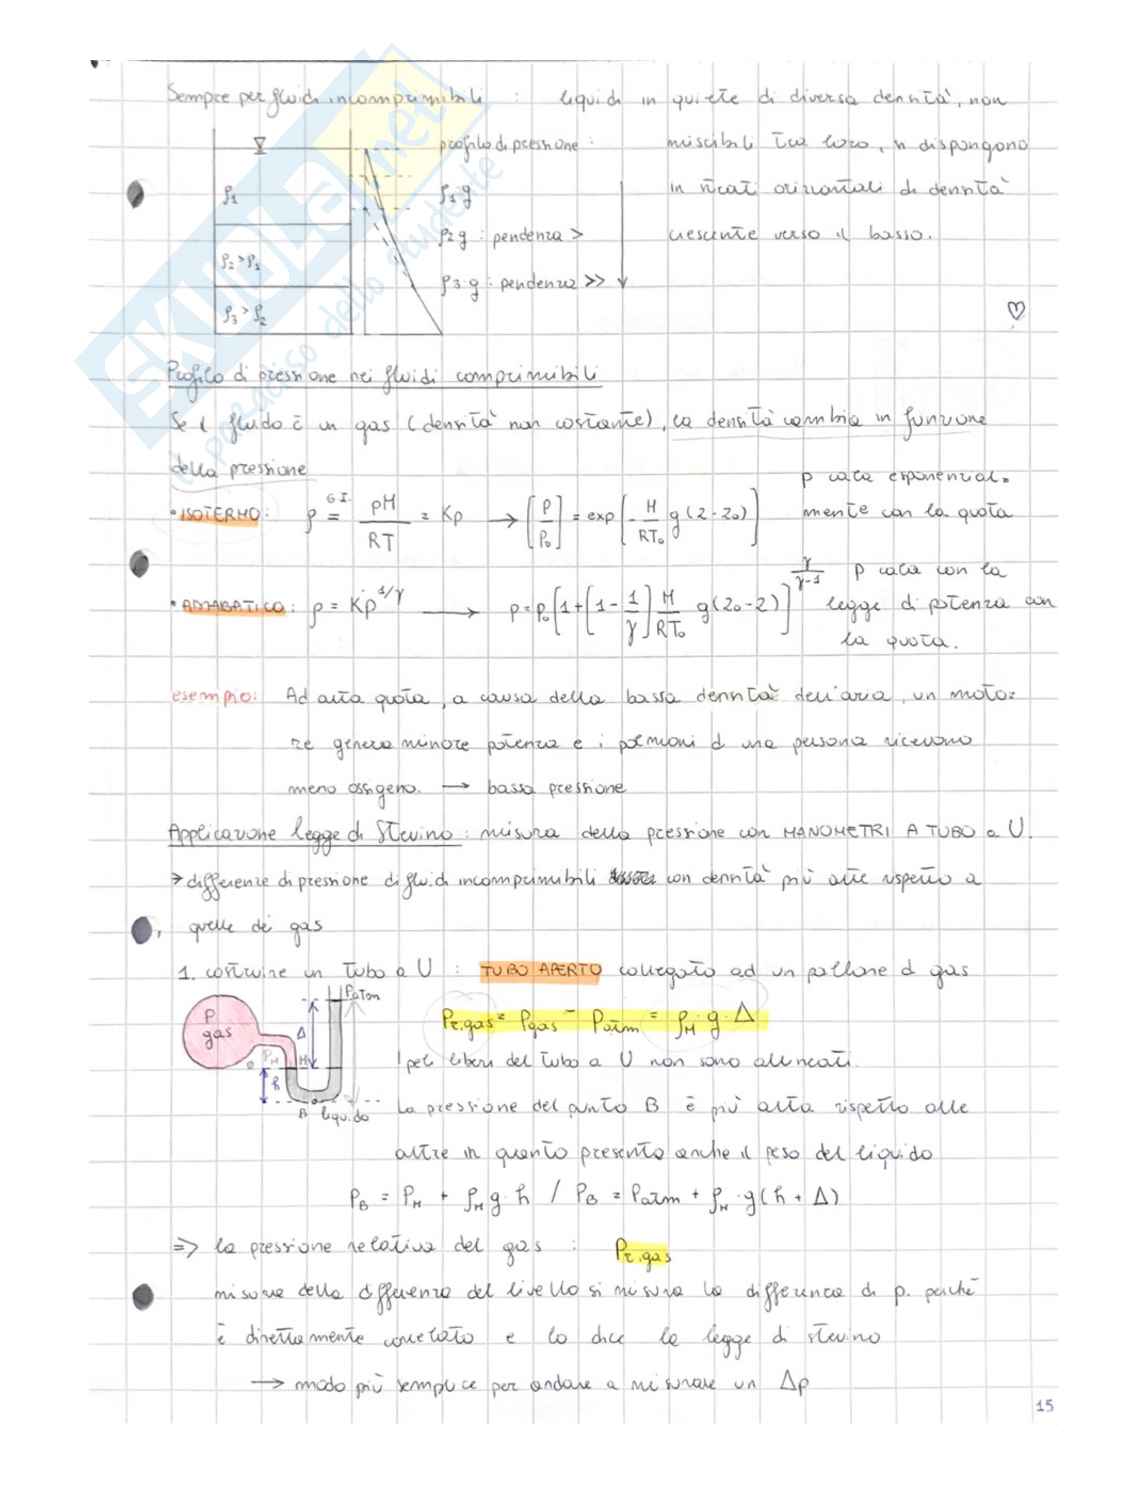 Sempre per fluidi incomprimibili : liquidi in quiete di diversa densità, non
profilo di pressione : miscibili tra loro, si dispongono
ρ1 ρ1 g in strati orizzontali di densità
ρ2 g : pendenza > crescente verso il basso.
ρ2 > ρ1
ρ3 g : pendenza >>
ρ3 > ρ2
♡
SKUOLA.net
il paradiso dello studente
Profilo di pressione nei fluidi comprimibili
Se il fluido è un gas (densità non costante), la densità cambia in funzione
della pressione
• ISOTERMO: ρ =^{G.I.} pM/RT = Kp → [p/p₀] = exp[-M/RT₀ g(z-z₀)] p cala esponenzial=
mente con la quota
• ADIABATICO: ρ = Kp^{1/γ} → p = p₀[1+[1-1/γ] M/RT₀ g(z₀-z)]^{γ/γ-1} p cala con la
legge di potenza con
la quota.
esempio: Ad alta quota, a causa della bassa densità dell'aria, un moto=
re genera minore potenza e i polmoni d una persona ricevono
meno ossigeno. → bassa pressione
Applicazione legge di Stevino : misura della pressione con MANOMETRI A TUBO a U.
→ differenze di pressione di fluidi incomprimibili con densità più alte rispetto a
quelle dei gas
1. costruire un tubo a U : TUBO APERTO collegato ad un pallone d gas
Patm
P gas
Δ
PM
M
h
B liquido
Pr.gas = Pgas - Patm = ρM · g · Δ
I peli liberi del tubo a U non sono allineati.
La pressione del punto B è più alta rispetto alle
altre in quanto presenta anche il peso del liquido
PB = PM + ρM g · h / PB = Patm + ρM · g(h + Δ)
=> la pressione relativa del gas : Pr.gas
misura della differenza del livello si misura la differenza di p. perché
è direttamente correlato e lo dice la legge di stevino
→ modo più semplice per andare a misurare un Δp
15